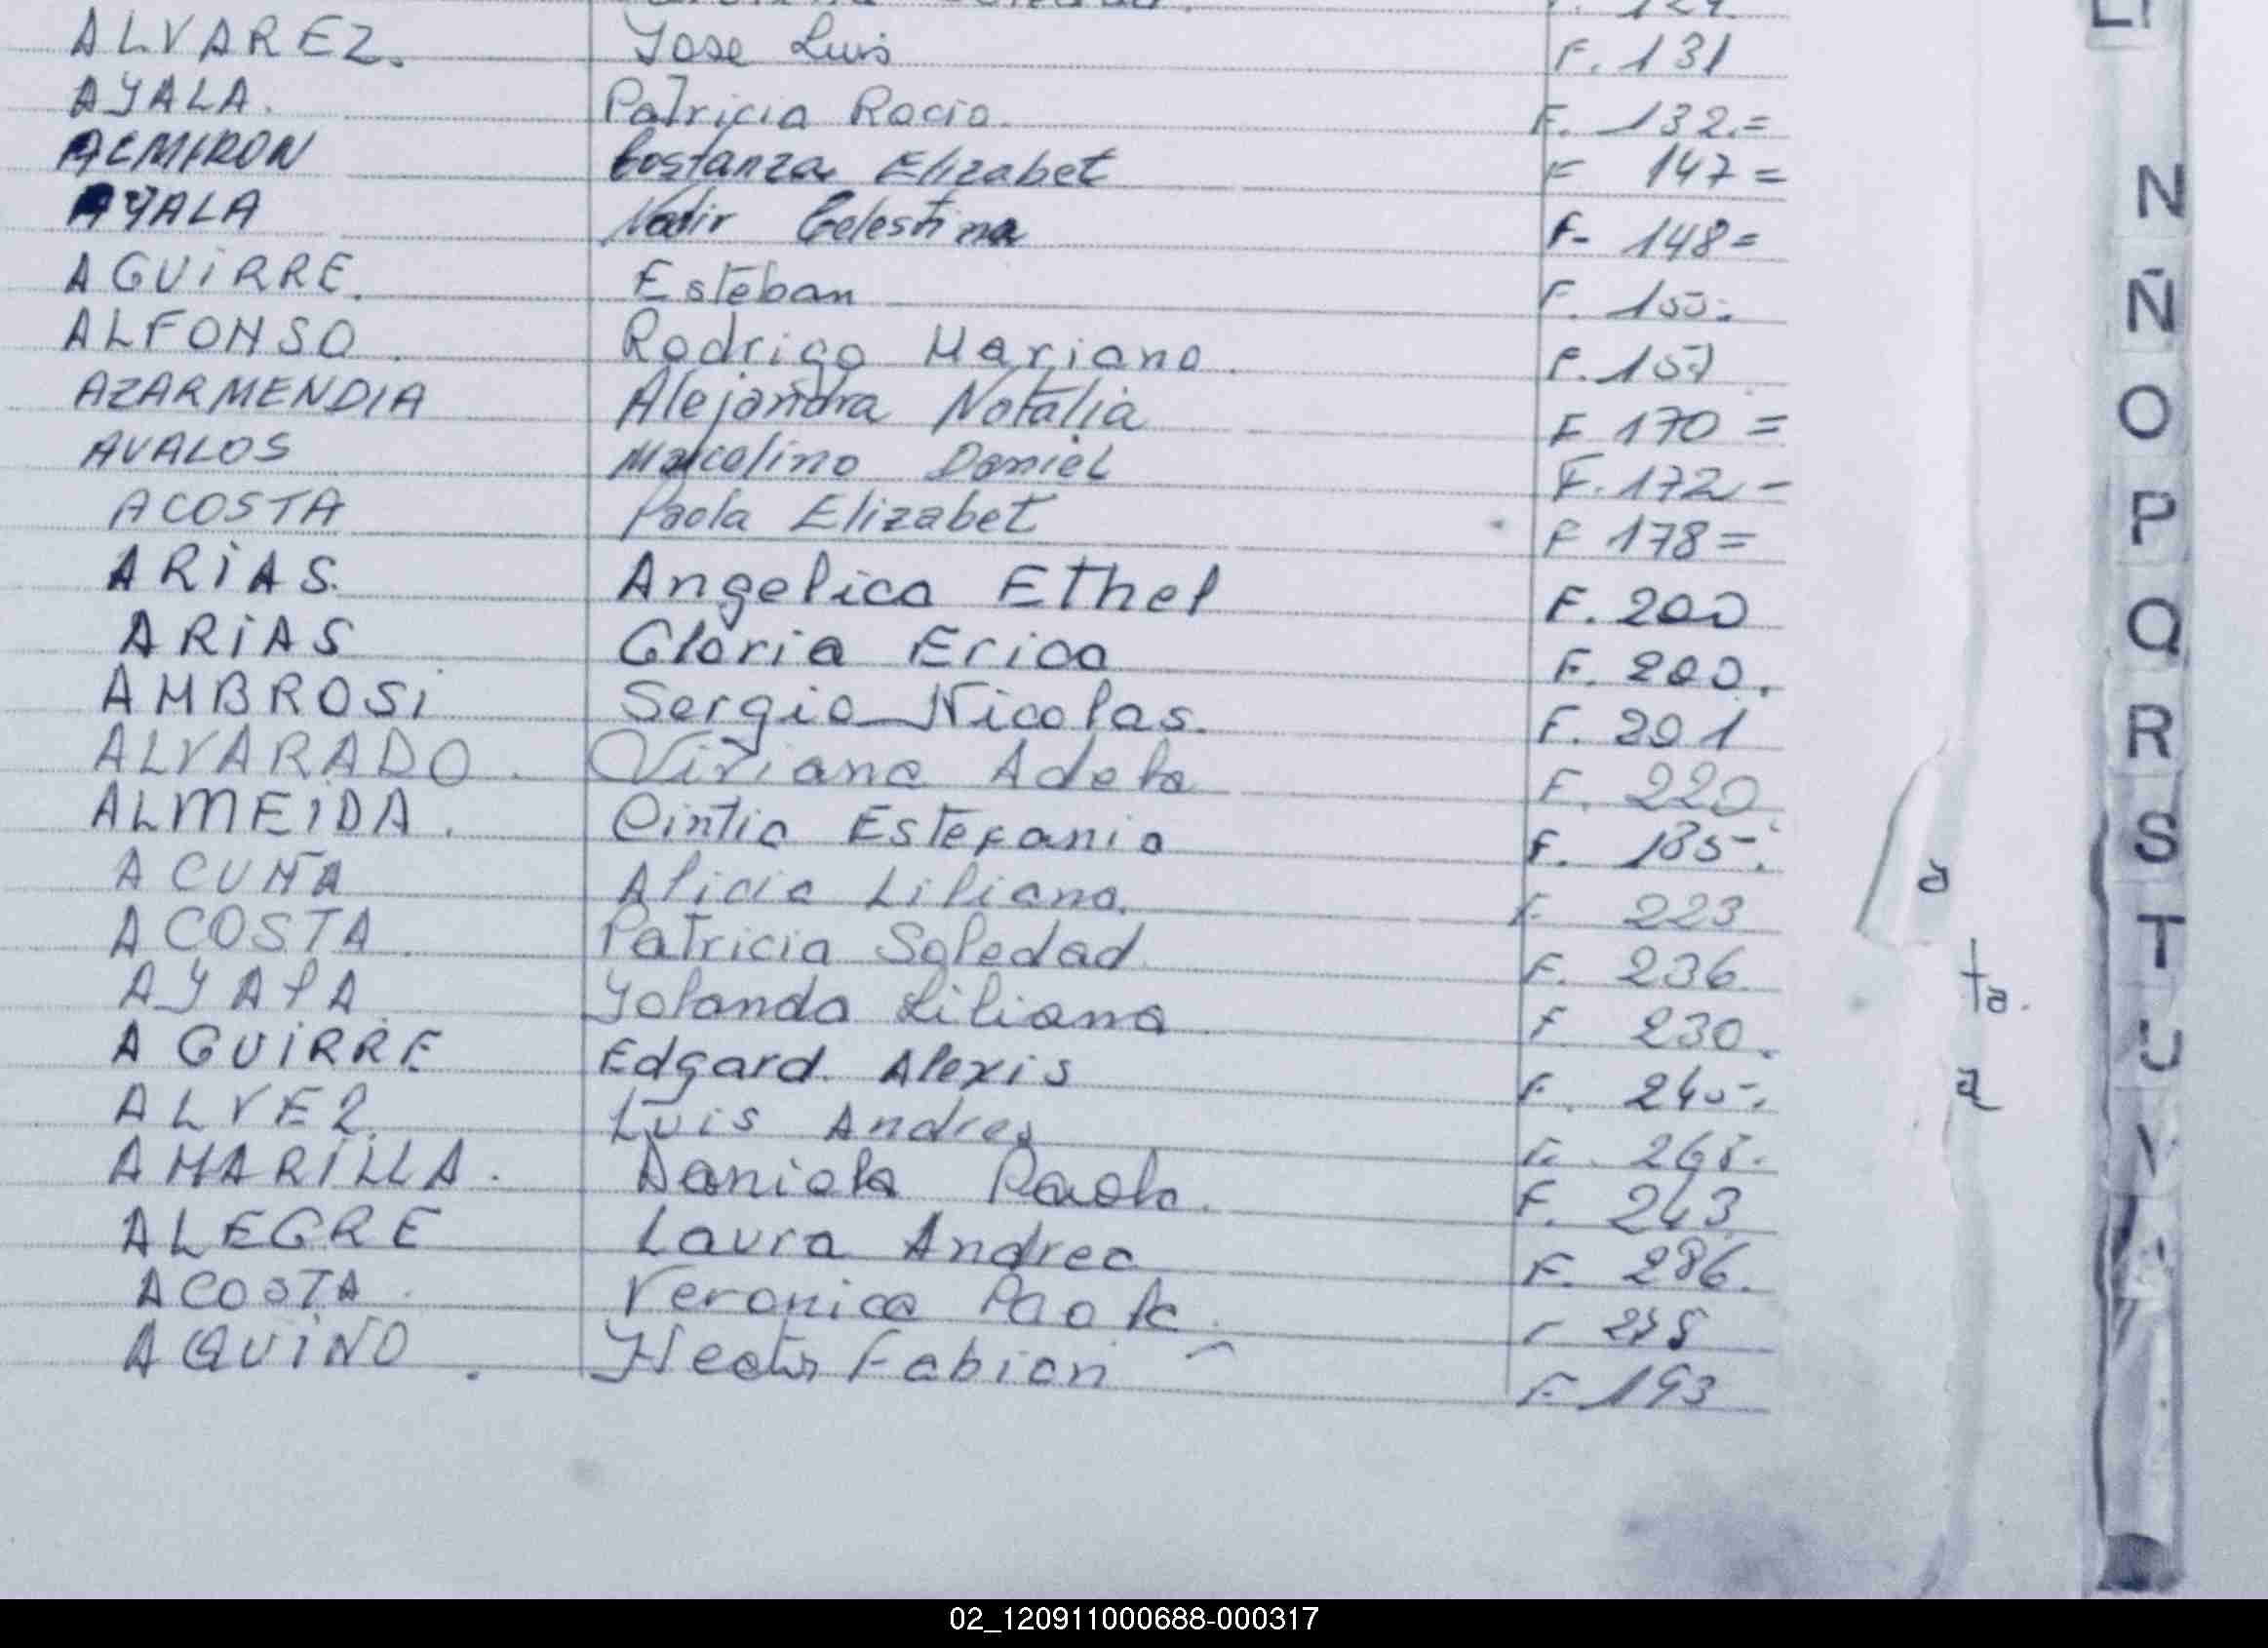 ALVAREZ. Jose Luis F. 131
AYALA. Patricia Rocio. F. 132.=
ALMIRON Costanza Elizabet F 147=
AYALA Nadir Celestina F- 148=
AGUIRRE. Esteban F. 155.
ALFONSO. Rodrigo Mariano. F. 157
AZARMENDIA Alejandra Natalia F 170 =
AVALOS Marcelino Daniel F. 172-
ACOSTA Paola Elizabet F 178=
ARIAS. Angelica Ethel F. 200
ARIAS Gloria Erica F. 200.
AMBROSI Sergio Nicolas. F. 201
ALVARADO. Viviana Adela F. 220
ALMEIDA. Cintia Estefania F. 185-.
ACUÑA Alicia Liliana. F. 223
ACOSTA. Patricia Soledad. F. 236.
AYALA. Yolanda Liliana. F. 230.
AGUIRRE Edgard. Alexis F. 245-.
ALVEZ. Luis Andres F. 265.
AMARILLA. Daniela Paola. F. 243
ALEGRE Laura Andrea F. 286.
ACOSTA. Veronica Paola.
AQUINO. Hector Fabian F 193
N
Ñ
O
P
Q
R
S
T
U
V
a
ta.
a
02_120911000688-000317